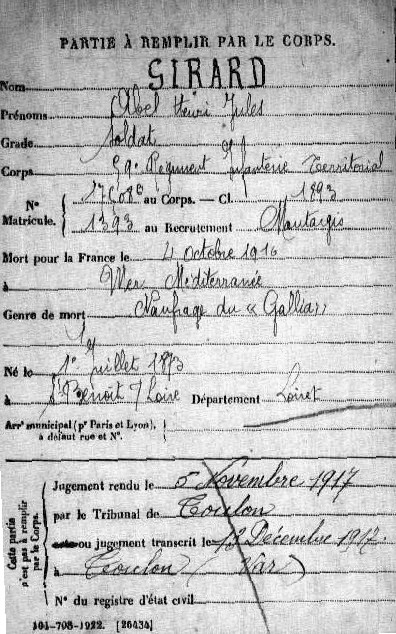 PARTIE À REMPLIR PAR LE CORPS.
Nom SIRARD
Prénoms Abel Henri Jules
Grade Soldat
Corps 59e Régiment Infanterie Territorial
N° Matricule. { 17608 au Corps. — Cl. 1893
1393 au Recrutement Montargis
Mort pour la France le 4 octobre 1916
à Mer Méditerranée
Genre de mort Naufrage du « Gallia »
Né le 1er Juillet 1873
à St Benoit s/ Loire Département Loiret
Arrt municipal (pr Paris et Lyon),
à défaut rue et N°.
Cette partie n'est pas à remplir par le Corps.
Jugement rendu le 5 Novembre 1917
par le Tribunal de Toulon
ou jugement transcrit le 13 Décembre 1917.
à Toulon (Var)
N° du registre d'état civil
101-708-1922. [26434]